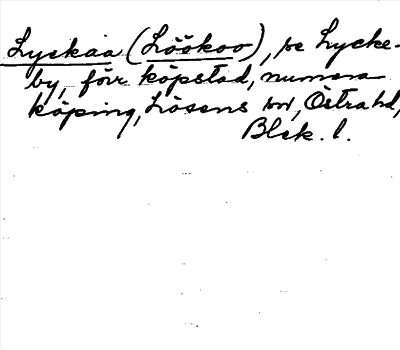 Lyckaa (Löökoo), se Lycke-
by, förr köpstad, numera
köping, Lösens sn, Östra hd,
Blek. l.